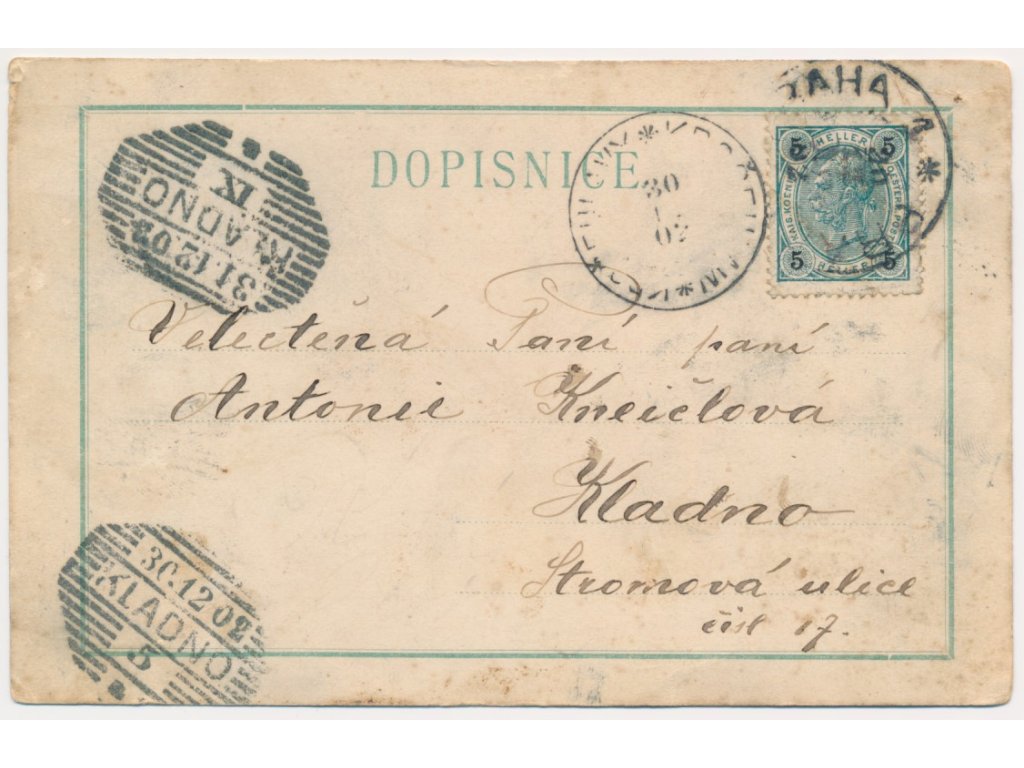 DOPISNICE
HELLER
5 5
KAIS. KOENIGL. OESTERR. POST
5 5
HELLER
30
02
KLADNO
K
31.12.02
Velectená Paní paní
Antonii Kneičlová
Kladno
Stromová ulice
čísl 17.
30.12 02
KLADNO
5